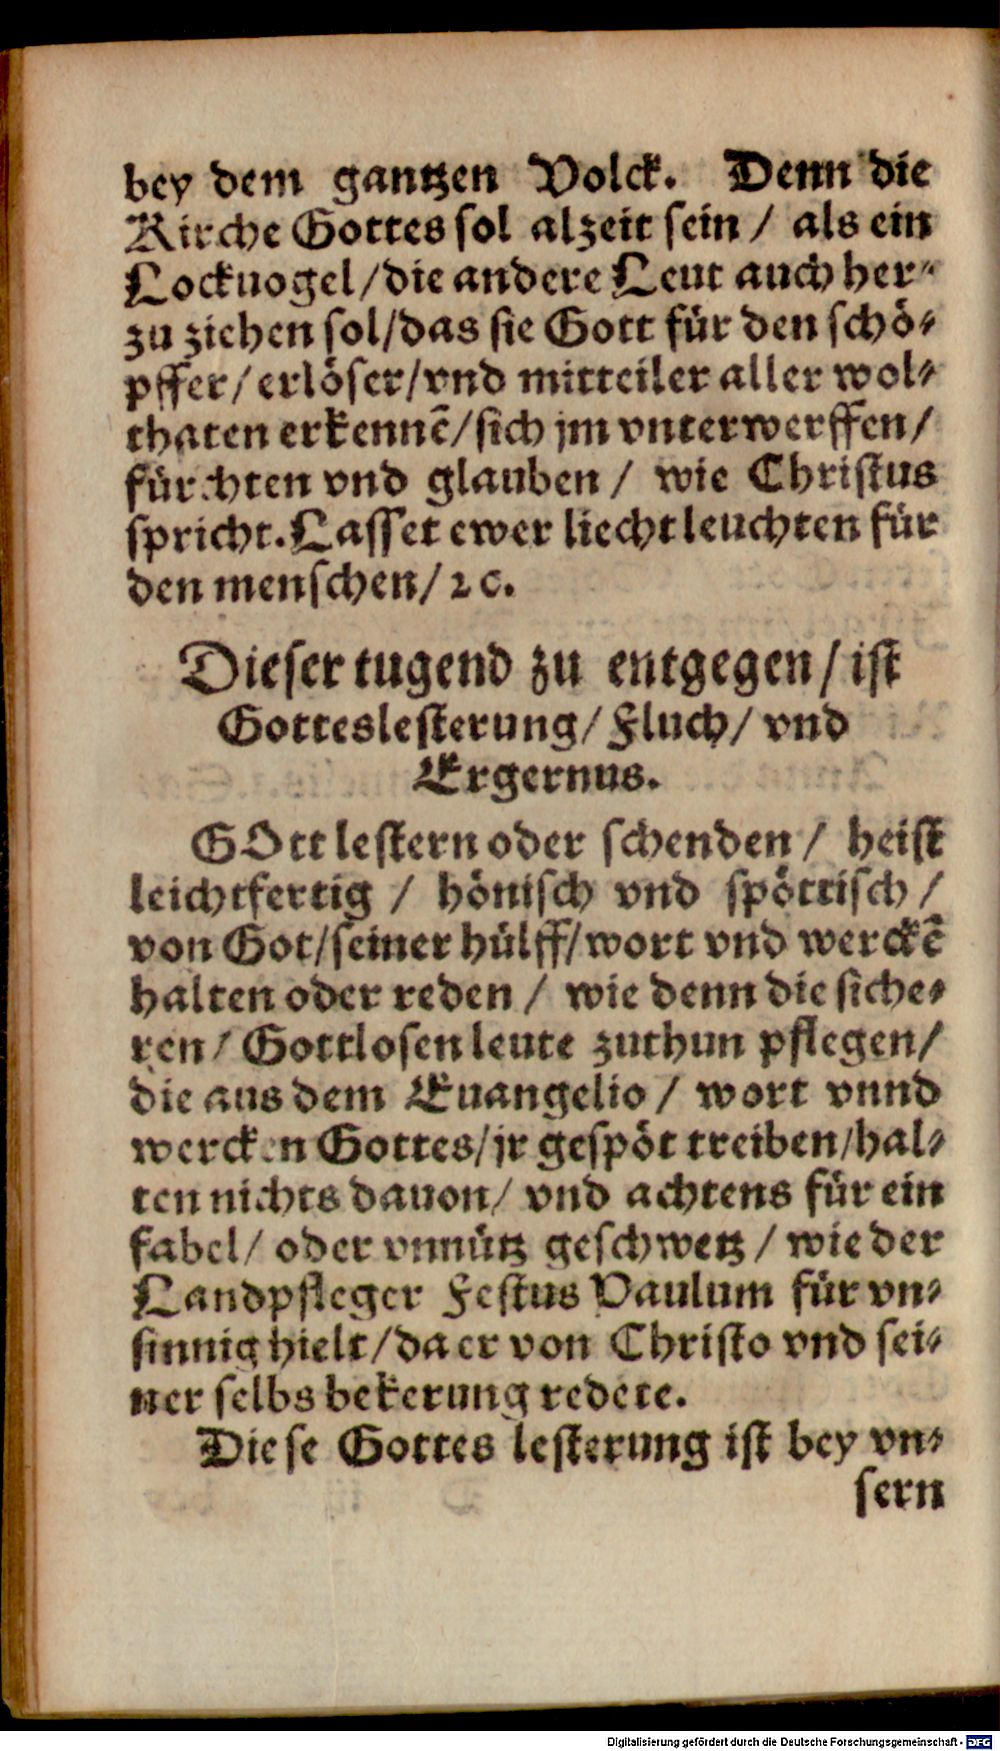 bey dem gantzen Volck. Denn die
Kirche Gottes sol alzeit sein / als ein
Lockuogel / die andere Leut auch her⸗
zu ziehen sol / das sie Gott für den schö⸗
pffer / erlöser / vnd mitteiler aller wol⸗
thaten erkennē / sich jm vnterwerffen /
fürchten vnd glauben / wie Christus
spricht. Lasset ewer liecht leuchten für
den menschen / ꝛc.
Dieser tugend zu entgegen / ist
Gotteslesterung / Fluch / vnd
Ergernus.
GOtt lestern oder schenden / heist
leichtfertig / hönisch vnd spöttisch /
von Got / seiner hülff / wort vnd werckē
halten oder reden / wie denn die siche⸗
ren / Gottlosen leute zuthun pflegen /
die aus dem Euangelio / wort vnnd
wercken Gottes / jr gespöt treiben / hal⸗
ten nichts dauon / vnd achtens für ein
fabel / oder vnnütz geschwetz / wie der
Landpfleger Festus Paulum für vn⸗
sinnig hielt / da er von Christo vnd sei⸗
ner selbs bekerung redete.
Diese Gottes lesterung ist bey vn⸗
sern
Digitalisierung gefördert durch die Deutsche Forschungsgemeinschaft - DFG